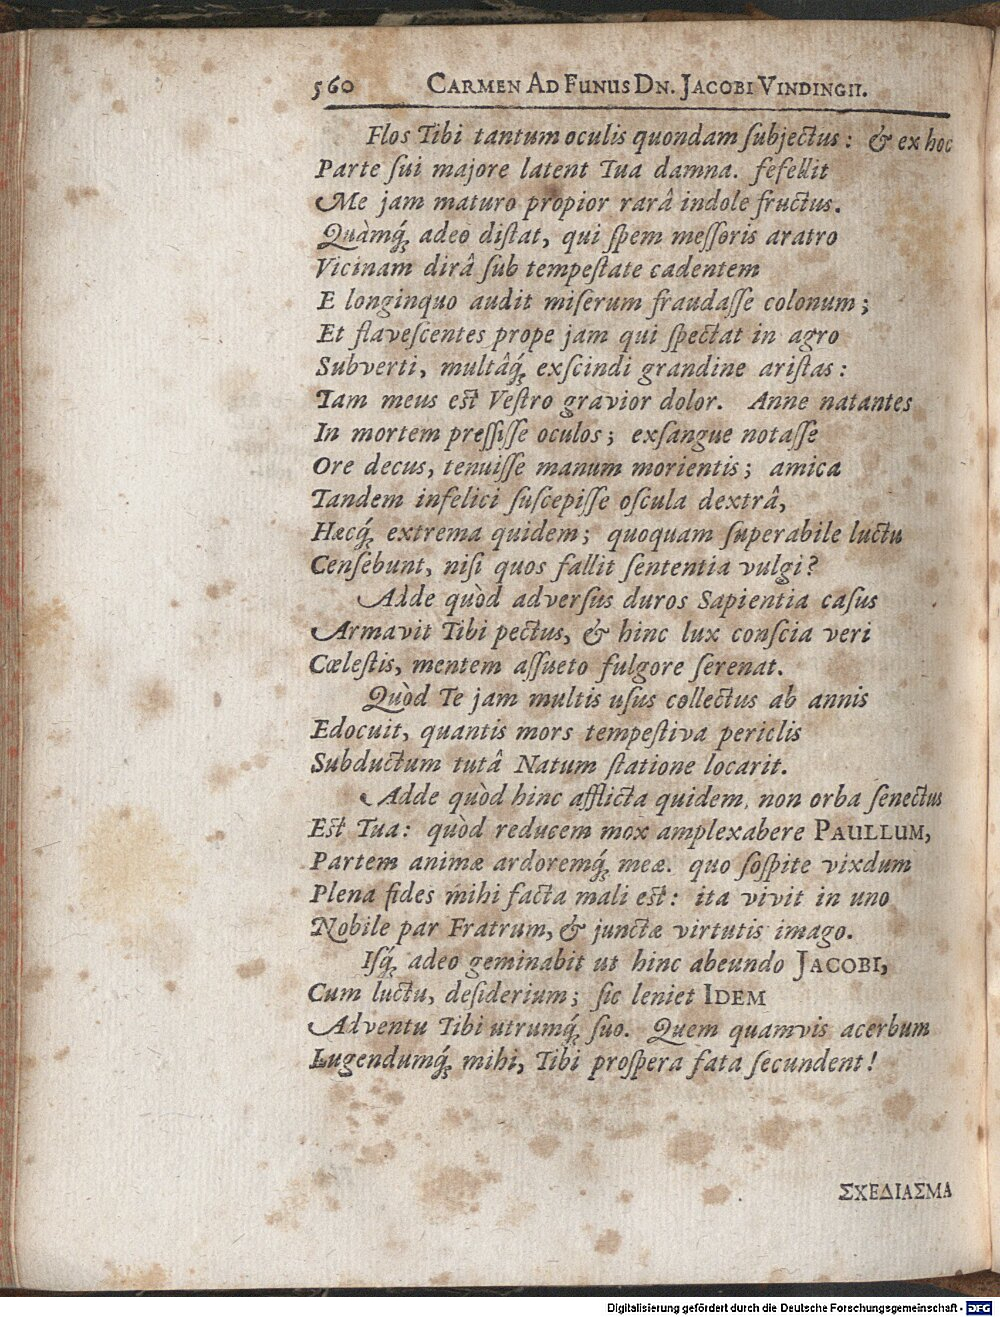 560 CARMEN AD FUNUS DN. JACOBI VINDINGII.
Flos Tibi tantum oculis quondam ſubjectus: & ex hoc
Parte ſui majore latent Tua damna. fefellit
Me jam maturo propior rarâ indole fructus.
Quàmq́; adeo diſtat, qui ſpem meſſoris aratro
Vicinam dirâ ſub tempeſtate cadentem
E longinquo audit miſerum fraudaſſe colonum;
Et flaveſcentes prope jam qui ſpectat in agro
Subverti, multâq́; exſcindi grandine ariſtas:
Tam meus eſt Veſtro gravior dolor. Anne natantes
In mortem preſſiſſe oculos; exſangue notaſſe
Ore decus, tenuiſſe manum morientis; amica
Tandem infelici ſuſcepiſſe oſcula dextrâ,
Hæcq́; extrema quidem; quoquam ſuperabile luctu
Cenſebunt, niſi quos fallit ſententia vulgi?
Adde quòd adverſus duros Sapientia caſus
Armavit Tibi pectus, & hinc lux conſcia veri
Cœleſtis, mentem aſſueto fulgore ſerenat.
Quòd Te jam multis uſus collectus ab annis
Edocuit, quantis mors tempeſtiva periclis
Subductum tutâ Natum ſtatione locarit.
Adde quòd hinc afflicta quidem, non orba ſenectus
Eſt Tua: quòd reducem mox amplexabere PAULLUM,
Partem animæ ardoremq́; meæ. quo ſoſpite vixdum
Plena fides mihi facta mali eſt: ita vivit in uno
Nobile par Fratrum, & junctæ virtutis imago.
Iſq́; adeo geminabit ut hinc abeundo JACOBI,
Cum luctu, deſiderium; ſic leniet IDEM
Adventu Tibi utrumq́; ſuo. Quem quamvis acerbum
Lugendumq́; mihi, Tibi proſpera fata ſecundent!
ΣΧΕΔΙΑΣΜΑ
Digitalisierung gefördert durch die Deutsche Forschungsgemeinschaft - DFG